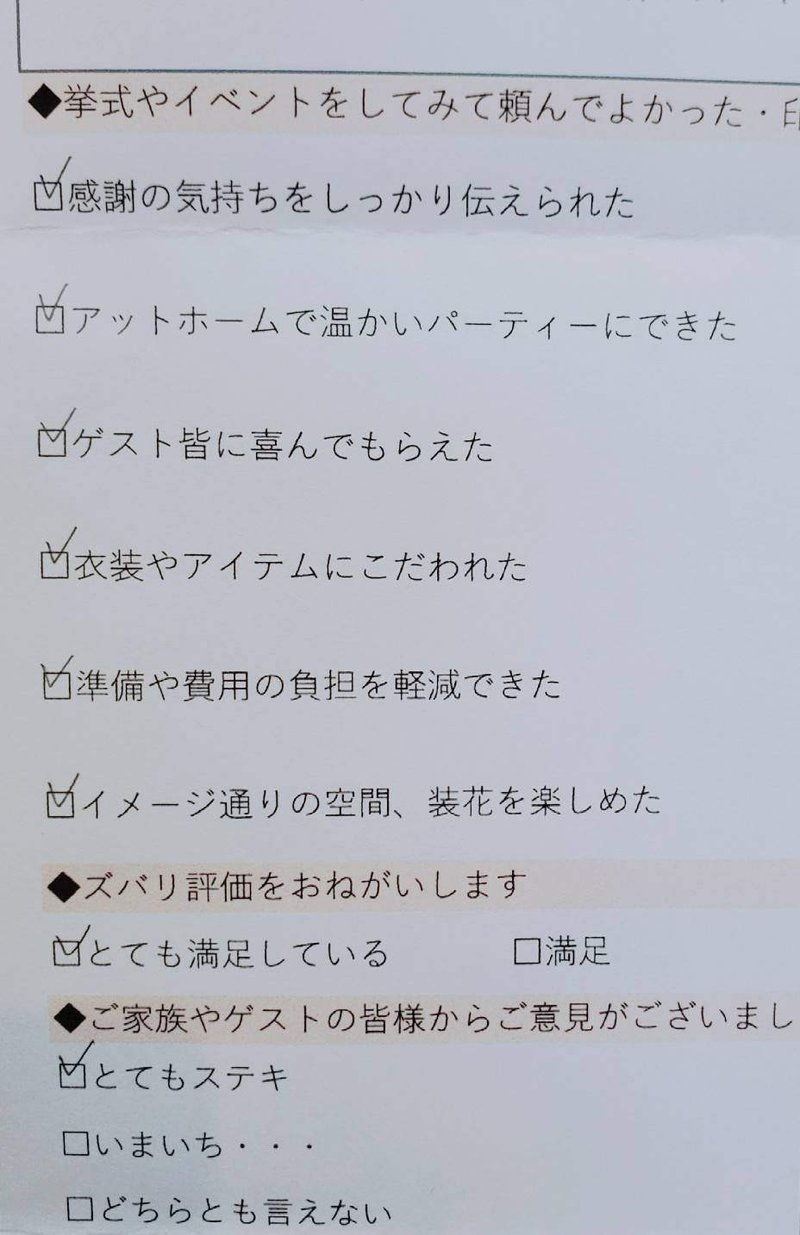 ◆挙式やイベントをしてみて頼んでよかった・印
☑感謝の気持ちをしっかり伝えられた
☑アットホームで温かいパーティーにできた
☑ゲスト皆に喜んでもらえた
☑衣装やアイテムにこだわれた
☑準備や費用の負担を軽減できた
☑イメージ通りの空間、装花を楽しめた
◆ズバリ評価をおねがいします
☑とても満足している □満足
◆ご家族やゲストの皆様からご意見がございまし
☑とてもステキ
□いまいち・・・
□どちらとも言えない